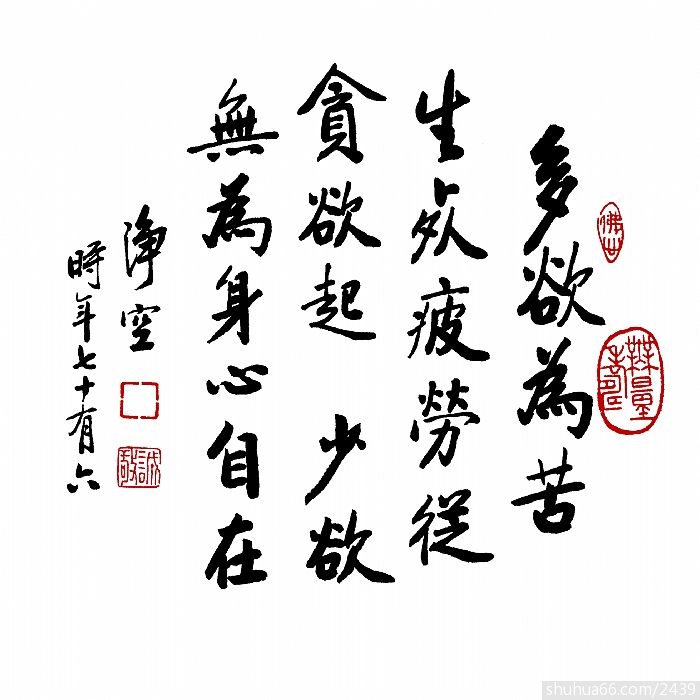 多欲為苦
生死疲勞從
貪欲起 少欲
無為身心自在
淨空
時年七十有六
誠敬
shuhua66.com/2439